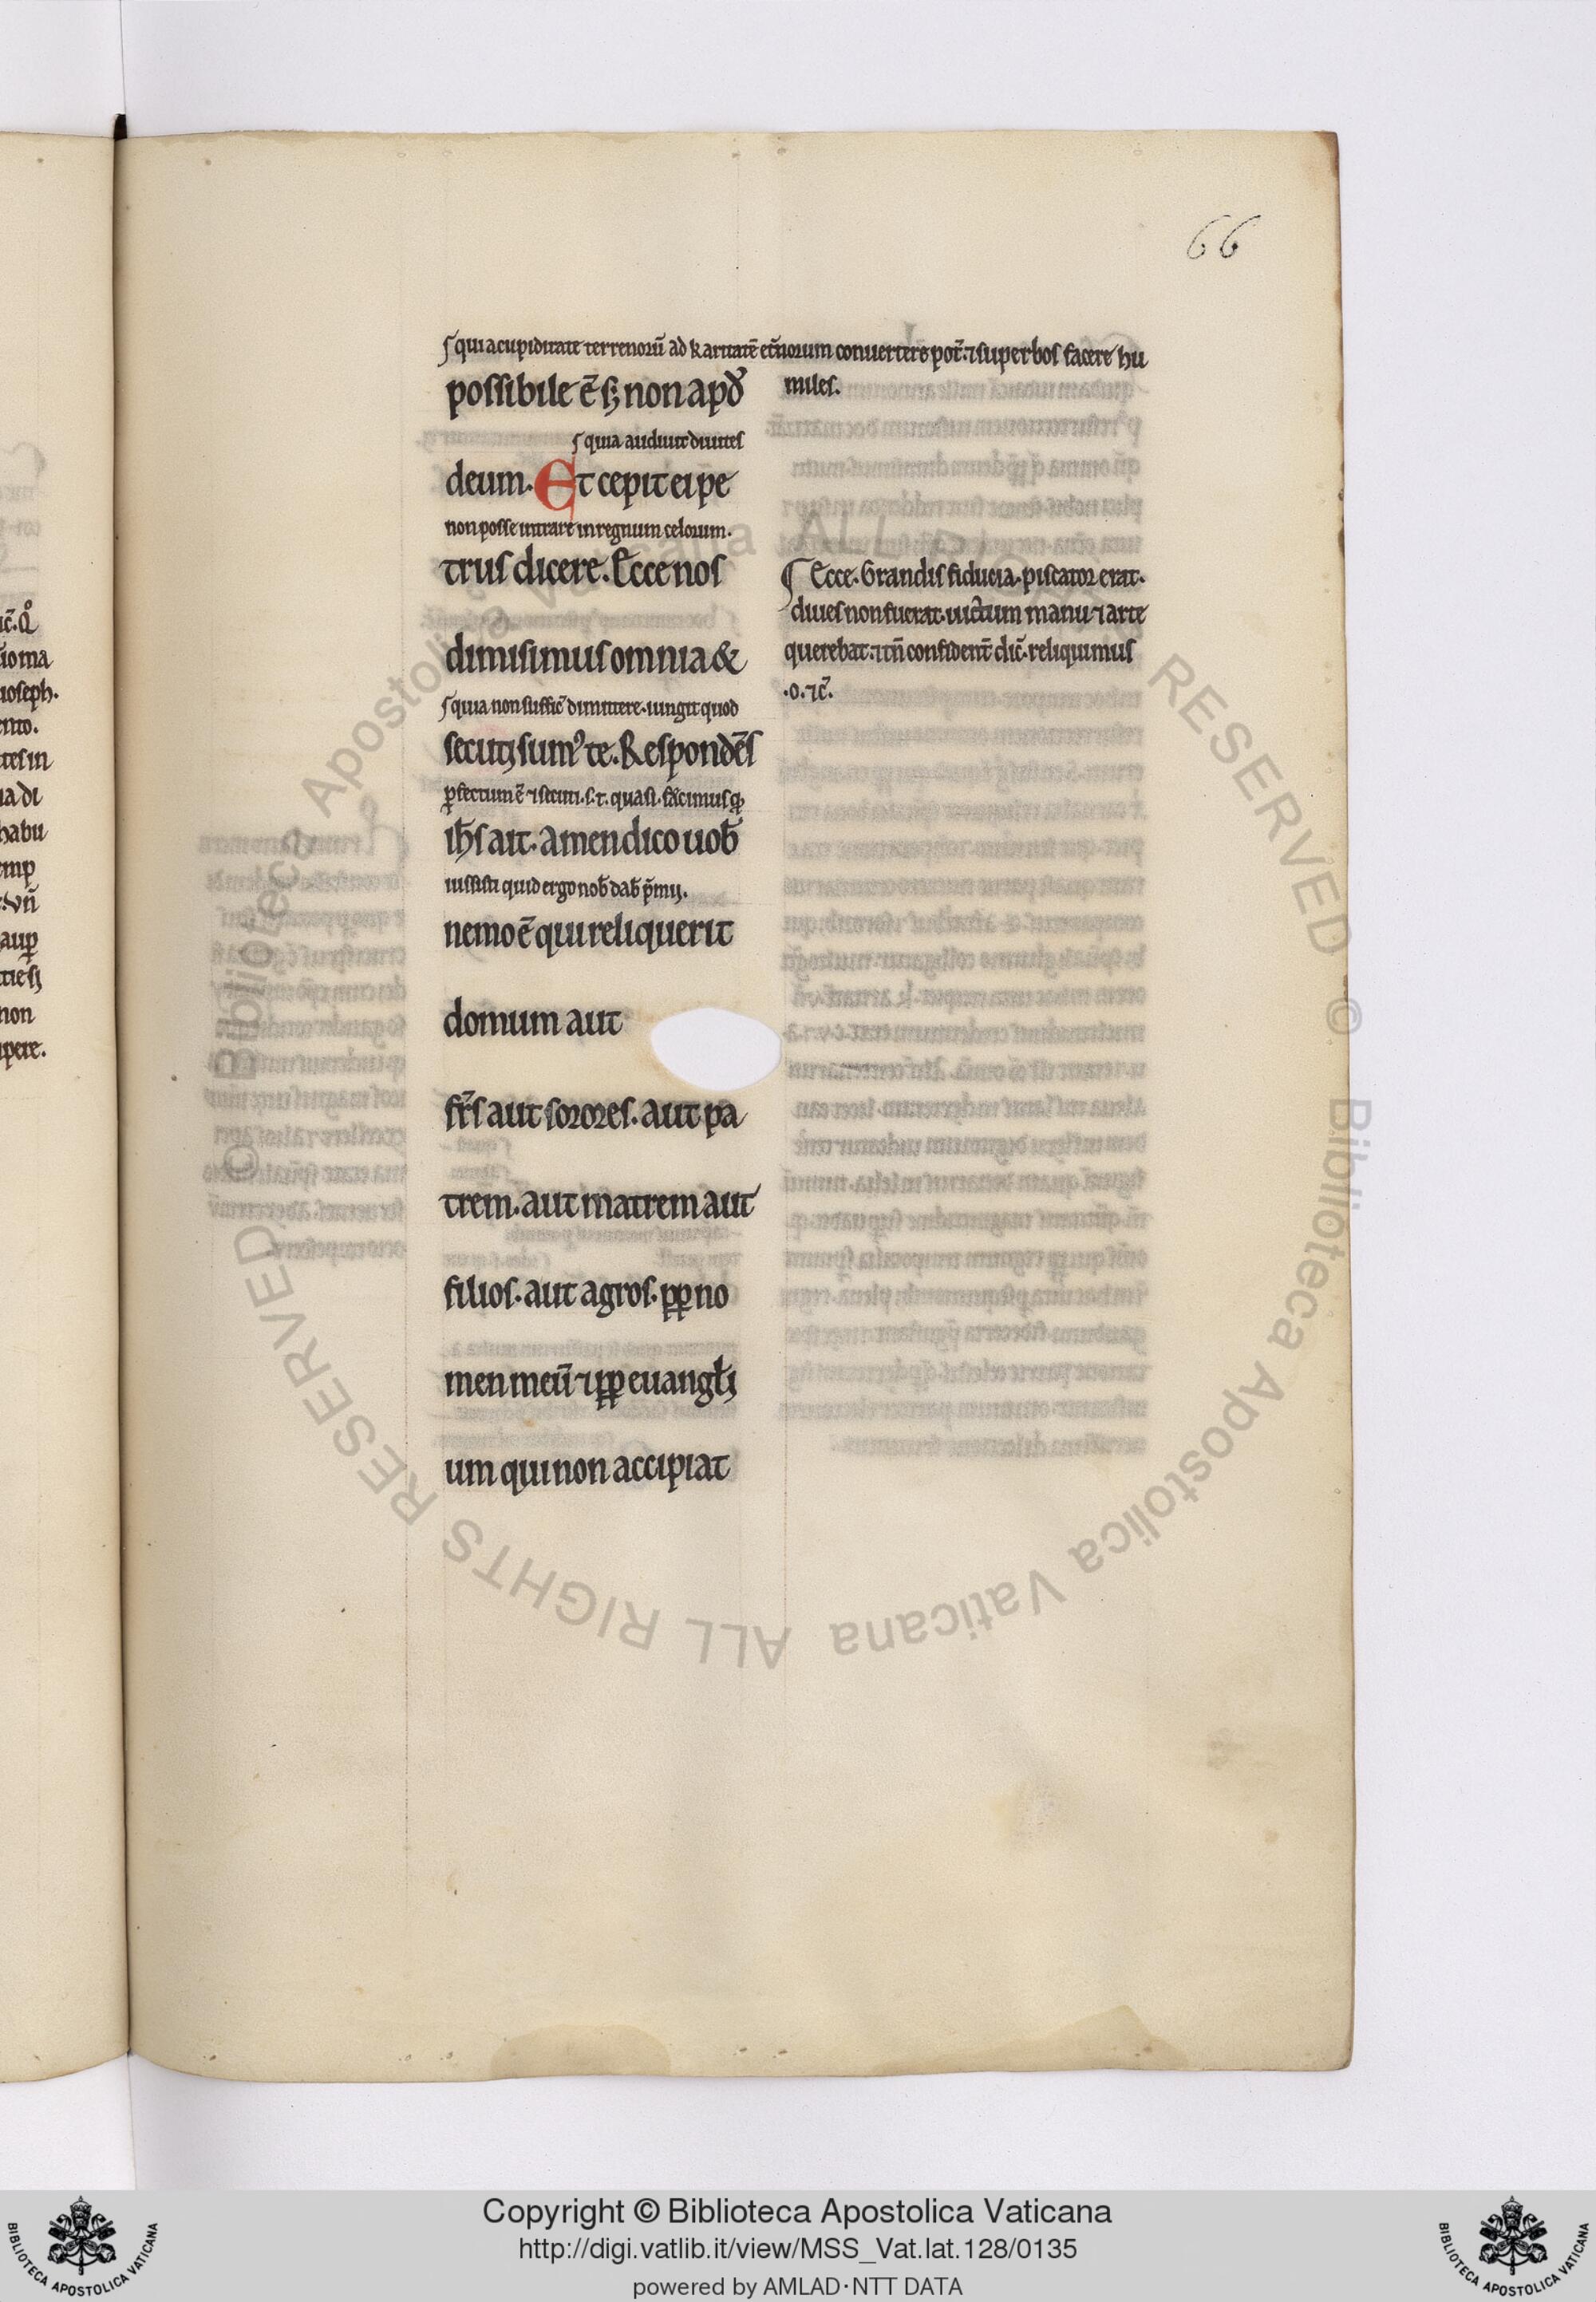 66
ſ qui a cupiditate terrenoꝝ̄ ad karitatē et̄norum conuertere pot̄. ⁊ superbos facere hu
miles.
possibile ē sꝫ non apd̓
ſ quia audiuit diuites
deum. Et cepit ei pe
non posse intrare in regnum celorum.
trus dicere. Ecce nos
dimisimus omnia &
ſ quia non suffic̄ dimittere. iungit quod
secutꝫ sumꝰ te. Respondēs
ꝑfectum ē ⁊ secuti. s. t. quasi. fecimus qd̓
ih̄s ait. amen dico uob̄
iussisti quid ergo nob̄ dab̄ p̄mij.
nemo ē qui reliquerit
domum aut
fr̄s aut sorores. aut pa
trem. aut matrem aut
filios. aut agros. ꝓꝑ no
men meū ⁊ ꝓꝑ euangł̄i
um qui non accipiat
¶ Ecce. Grandis fiducia. piscator erat.
diues non fuerat. uictum manu ⁊ arte
querebat. ⁊ tn̄ confident̄ dic̄. reliquimus
.o. ⁊c̄.
ic̄. Qͦ
ioseph.
ento.
tes in
ia di
habu
emp
. vn̄
auꝑ
non
ipere.
© Biblioteca Apostolica Vaticana ALL RIGHTS RESERVED © Biblioteca Apostolica Vaticana ALL RIGHTS RESERVED
BIBLIOTECA APOSTOLICA VATICANA
Copyright © Biblioteca Apostolica Vaticana
http://digi.vatlib.it/view/MSS_Vat.lat.128/0135
powered by AMLAD·NTT DATA
BIBLIOTECA APOSTOLICA VATICANA